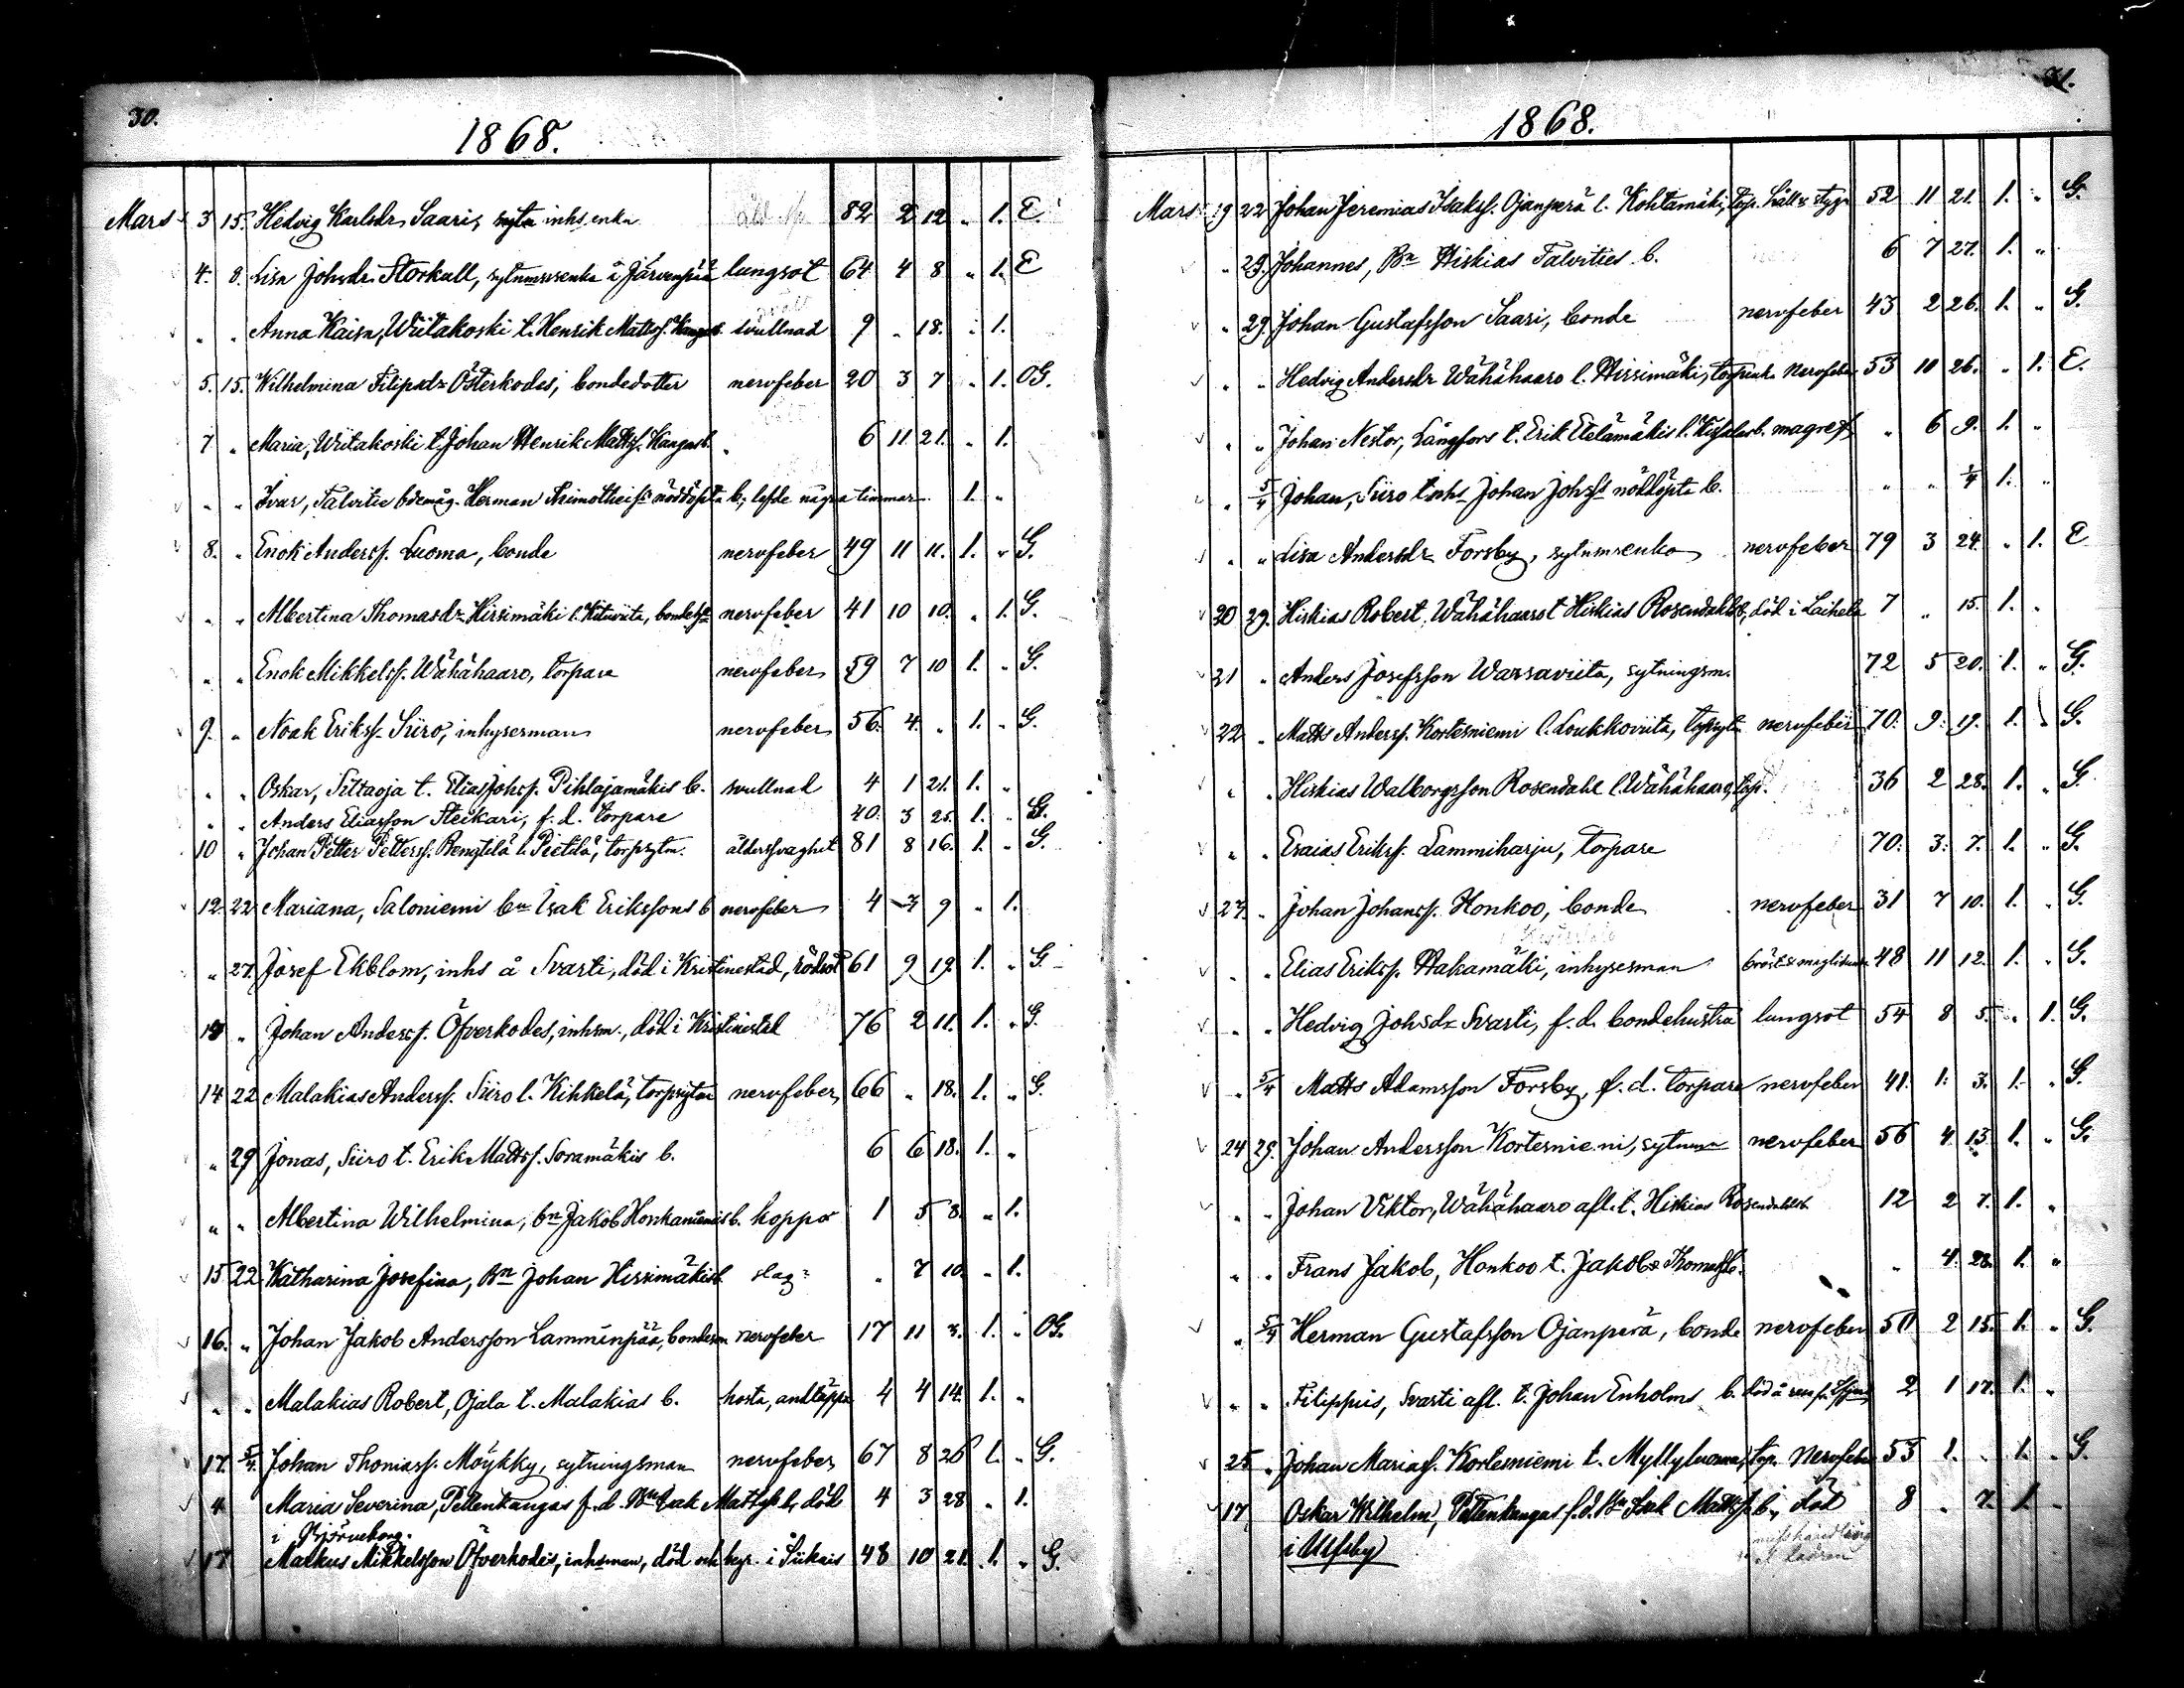 30.
1868.
Mars 3 15. Hedvig Karlsdr Saari, sytn inhs enka 82 2 12 " 1. E
4. 8. Lisa Johsdr. Storkall, sytnmsenka å Järvenpää lungsot 64 4 8 " 1. E
" " Anna Kaisa, Wiitakoski t. Henrik Mattsf. Kangas b. svullnad 9 " 18. " 1.
5. 15. Wilhelmina Filipsdr Österkodes, bondedotter nervfeber 20 3 7 " 1. OG.
7 " Maria, Wiitakoski t. Johan Henrik Mattsf. Kangas b. " 6 11 21. " 1.
" " Ivar, Talvitie bdemåg. Herman Thimotheifs nöddöpta b., lefde några timmar. 1. "
8. " Enok Andersf. Luoma, bonde nervfeber 49 11 11. 1. " G.
" " Albertina Thomasdr Hirsimäki l. Kituviita, bondehu nervfeber 41 10 10. " 1. G.
" " Enok Mikkelsf. Wähähaaro, torpare nervfeber 59 7 10 1. " G.
9. " Noak Eriksf. Siiro, inhyserman nervfeber 56. 4. " 1. " G.
" " Oskar, Siltaoja t. Elias Johsf. Pihlajamäkis b. svullnad 4 1 21. 1. "
" " Anders Eliasson Steikari, f. d. torpare 40. 3 25. 1. " G.
10 " Johan Petter Pettersf. Bengtilä l. Pietilä, torpsytm. åldersvaghet 81 8 16. 1. " G.
12. 22 Mariana, Saloniemi bn Isak Erikssons b nervfeber 4 3 9 " 1.
" 27. Josef Ekblom, inhs å Svarti, död i Kristinestad, rödsot 61 9 19. 1. " G.
" Johan Andersf. Öfverkodes, inhsm., död i Kristinestad 76 2 11. 1. " G.
14 22 Malakias Andersf. Siiro l. Kihkelä, torpsytm nervfeber 66 " 18. 1. " G.
" 29 Jonas, Siiro t. Erik Mattsf. Soramäkis b. 6 6 18. 1. "
" " Albertina Wilhelmina, bn Jakob Honkaniemis b. koppor 1 5 8. " 1.
15 22 Katharina Josefina, Bn Johan Hirsimäkis b. slag " 7 10. " 1.
16. " Johan Jakob Andersson Lamminpää, bondeson nervfeber 17 11 3. 1. " OG.
" " Malakias Robert, Ojala t. Malakias b. hosta, andtäppa 4 4 14. 1. "
17. 5/4. Johan Thomasf. Möykky, sytningsman nervfeber 67 8 26 1. " G.
4 Maria Severina, Pettenkangas f.d. Bn Isak Mattsf. b, död 4 3 28 " 1.
i Björneborg.
17 Malkus Mikkelsson Öfverkodes, inhsman, död och begr. i Siikais 48 10 21. 1. " G.
31.
1868.
Mars 19 22 Johan Jeremias Isaksf. Ojanperä l. Kohtamäki, torp. håll & styng 52 11 21. 1. " G.
" 29. Johannes, Bn Hiskias Talvities b. 6 7 27. 1. "
" 29. Johan Gustafsson Saari, bonde nervfeber 43 2 26. 1. " G.
" " Hedvig Andersdr Wähähaaro l. Hirsimäki, torpenk. Nervfeber 53 10 26. " 1. E.
" " Johan Nestor, Långfors t. Erik Etelämäkis b. magref " 6 9. 1. "
" 5/4 Johan, Siiro t. inhs Johan Johsfs nöddöpta b. " " 1/4 1. "
" " Lisa Andersdr Forsby, sytnmsenka nervfeber 79 3 24. " 1. E
20 29. Hiskias Robert, Wähähaaro t Hiskias Rosendahls b, död i Laihela 7 " 15. 1. "
21 " Anders Josefsson Warsaviita, sytningsm. 72 5 20. 1. " G.
22 " Matts Andersf. Kortesniemi l. Loukkoviita, torpsytn nervfeber 70. 9. 19. 1. " G.
" " Hiskias Walborgsson Rosendahl l. Wähähaaro, torp. 36 2 28. 1. " G
" " Esaias Eriksf. Lammiharju, torpare 70. 3. 7. 1. " G.
23. " Johan Johansf. Honkoo, bonde nervfeber 31 7 10. 1. " G.
" " Elias Eriksf. Hakamäki, inhyserman 48 11 12. 1. " G.
" " Hedvig Johsdr Svarti, f. d. bondehustru lungsot 54 8 5. " 1. G.
" 5/4 Matts Adamsson Forsby, f. d. torpare nervfeber 41. 1. 3. 1. " G.
24 29. Johan Andersson Kortesniemi, sytnm nervfeber 56 4 13. 1. " G.
" " Johan Viktor, Wähähaaro afl. t. Hiskias Rosendahls b. 12 2 7. 1. "
" " Frans Jakob, Honkoo t. Jakob Thomasf b. " 4. 28. 1. "
" 5/4 Herman Gustafsson Ojanperä, bonde nervfeber 50 2 15. 1. " G.
" " Filippus, Svarti afl. t. Johan Enholms b. död å 2 1 17. 1. "
25 " Johan Mariasf. Kortesniemi t. Myllyluoma, torp. Nervfeber 53 1. " 1. " G.
17 Oskar Wilhelm, Pettenkangas f.d. Bn Isak Mattsf b., död 8 " 7. 1. "
i Ulfsby
misshandling